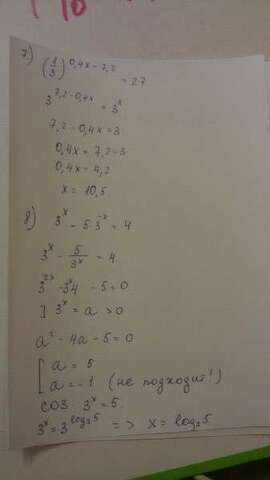 7) (1/3)^(0,4x-7,2) = 27
3^(7,2-0,4x) = 3^x
7,2-0,4x=3
0,4x = 7,2-3
0,4x=4,2
x = 10,5
8) 3^x - 5·3^(-x) = 4
3^x - 5/3^x = 4
3^(2x) - 3^x 4 - 5 = 0
] 3^x = a > 0
a² - 4a - 5 = 0
[ a = 5
a = -1 (не подходит!)
соз: 3^x = 5
3^x = 3^(log₃5) => x = log₃5